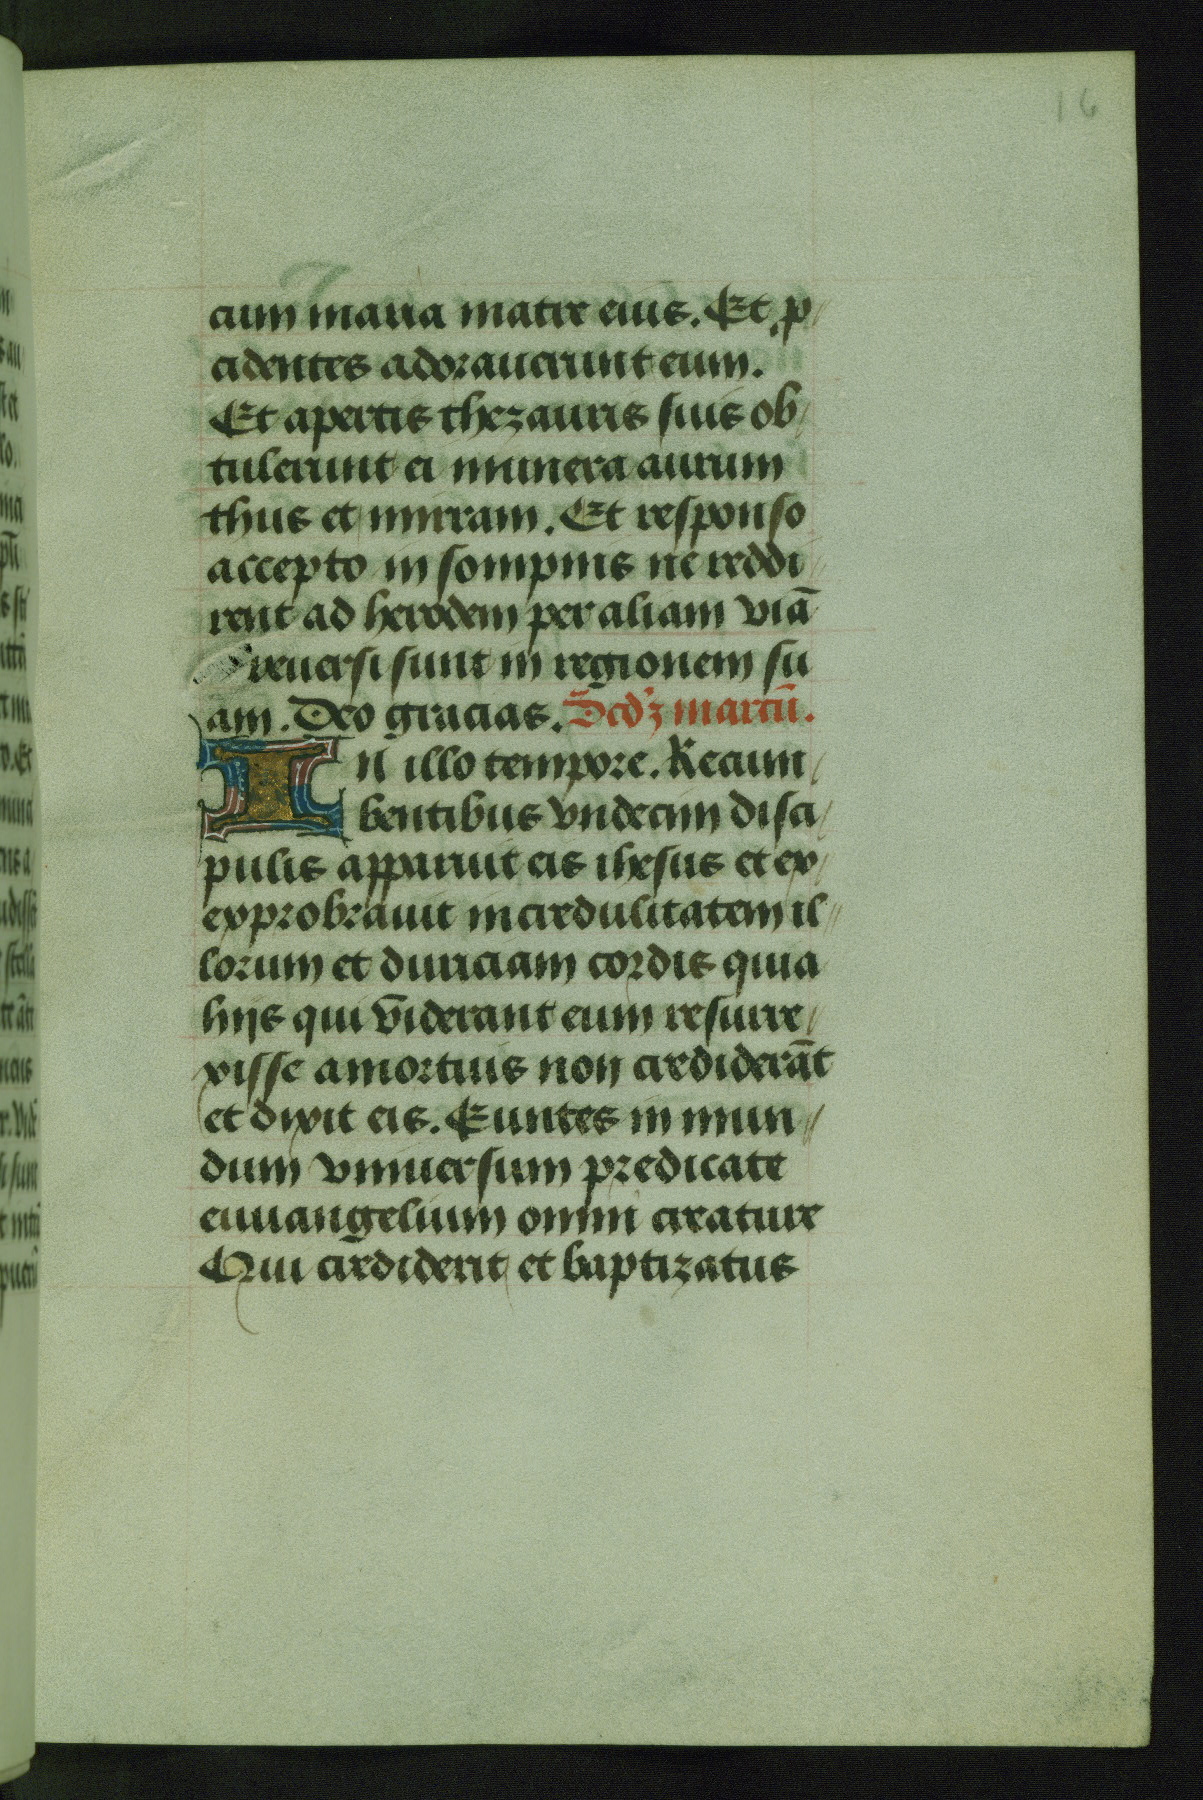 16
cum maria matre eius. Et p
cidentes adorauerunt eum.
Et apertis thezauris suis ob
tulerunt ei munera aurum
thus et mirram. Et responso
accepto in sompnis ne reddi
rent ad herodem per aliam viā
reuersi sunt in regionem su
am. Deo gracias. Scdʒ marcū.
In illo tempore. Recum
bentibus vndecim disci
pulis apparuit eis ihesus et ex
exprobrauit incredulitatem il
lorum et duriciam cordis quia
hijs qui viderant eum resurre
xisse a mortuis non crediderāt
et dixit eis. Euntes in mun
dum vniuersum predicate
euuangelium omni creature
Qui crediderit et baptizatus